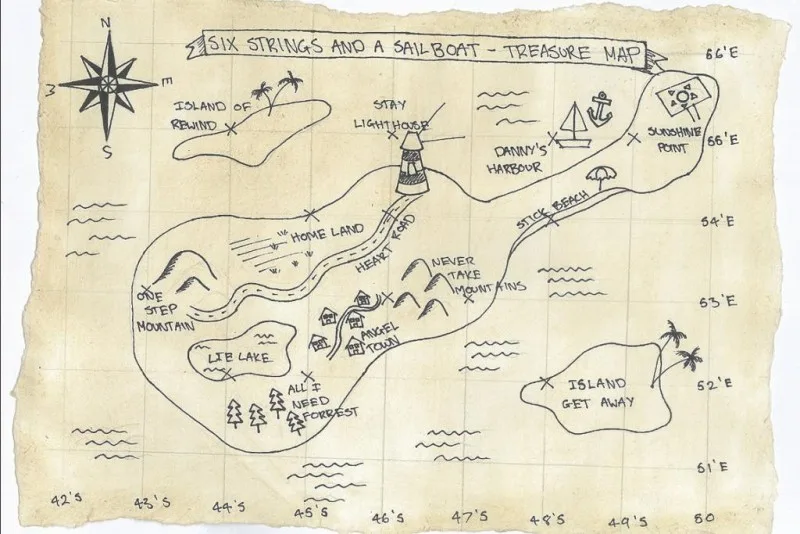 N
SIX STRINGS AND A SAILBOAT - TREASURE MAP
66'E
E
3
S
ISLAND OF
REWIND
STAY
LIGHTHOUSE
DANNY'S
HARBOUR
SUNSHINE
POINT
55'E
STICK BEACH
54'E
HOME LAND
HEART ROAD
NEVER
TAKE
MOUNTAINS
ONE
STEP
MOUNTAIN
53'E
ANGEL
TOWN
LIE LAKE
ALL I
NEED
FORREST
ISLAND
GET AWAY
52'E
51'E
42'S
43'S
44'S
45'S
46'S
47'S
48'S
49'S
50